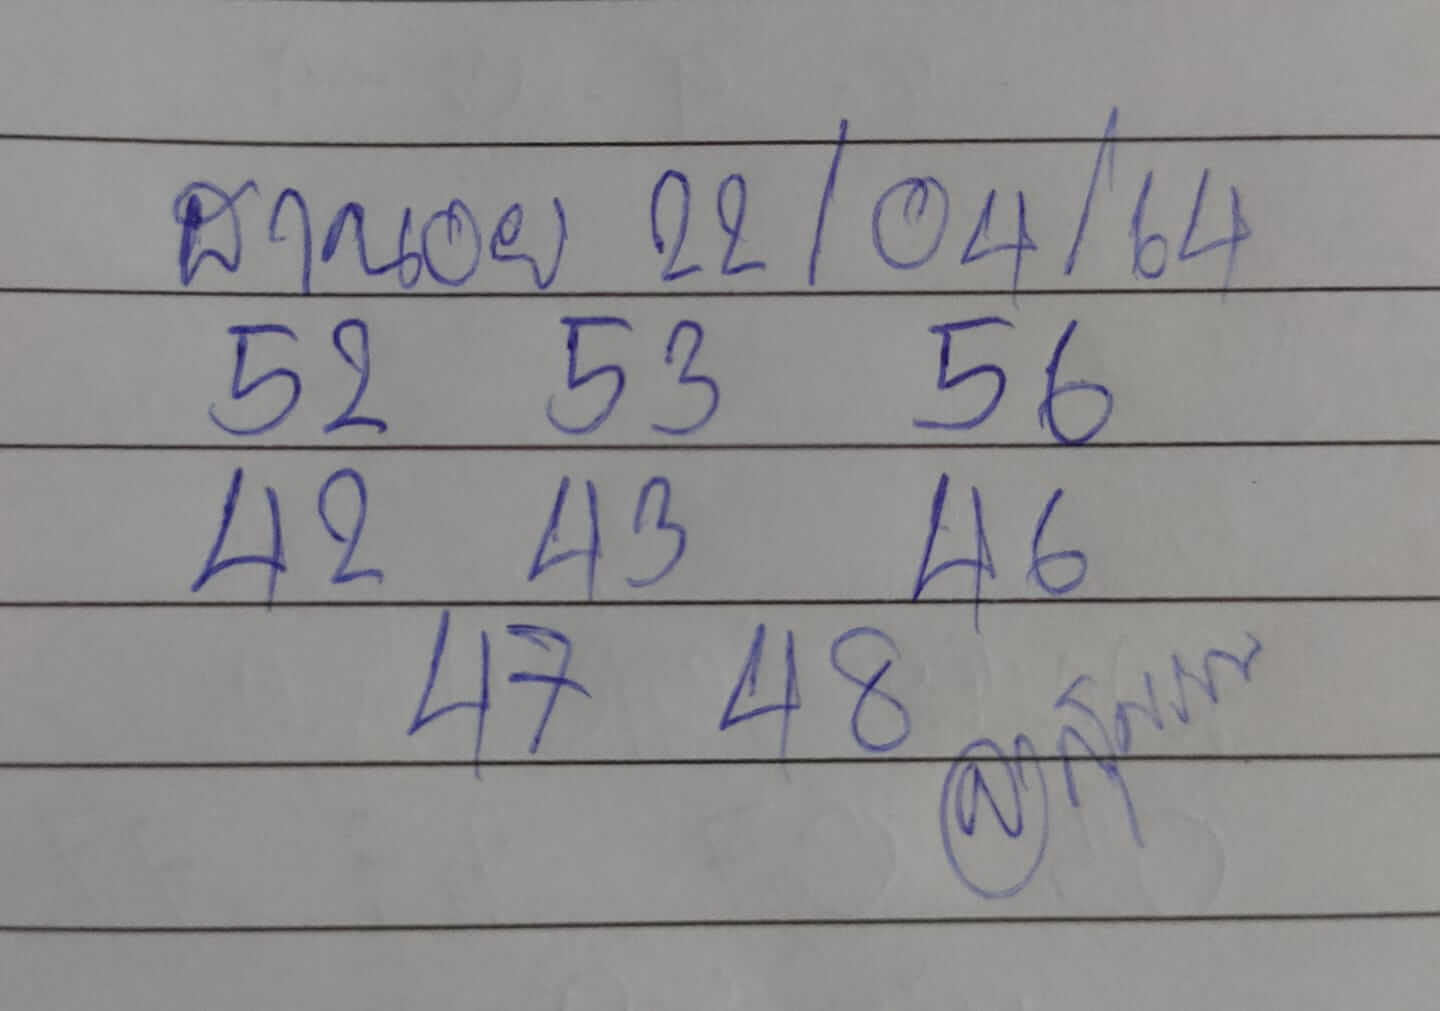 ฮานอย 22/04/64
52 53 56
42 43 46
47 48